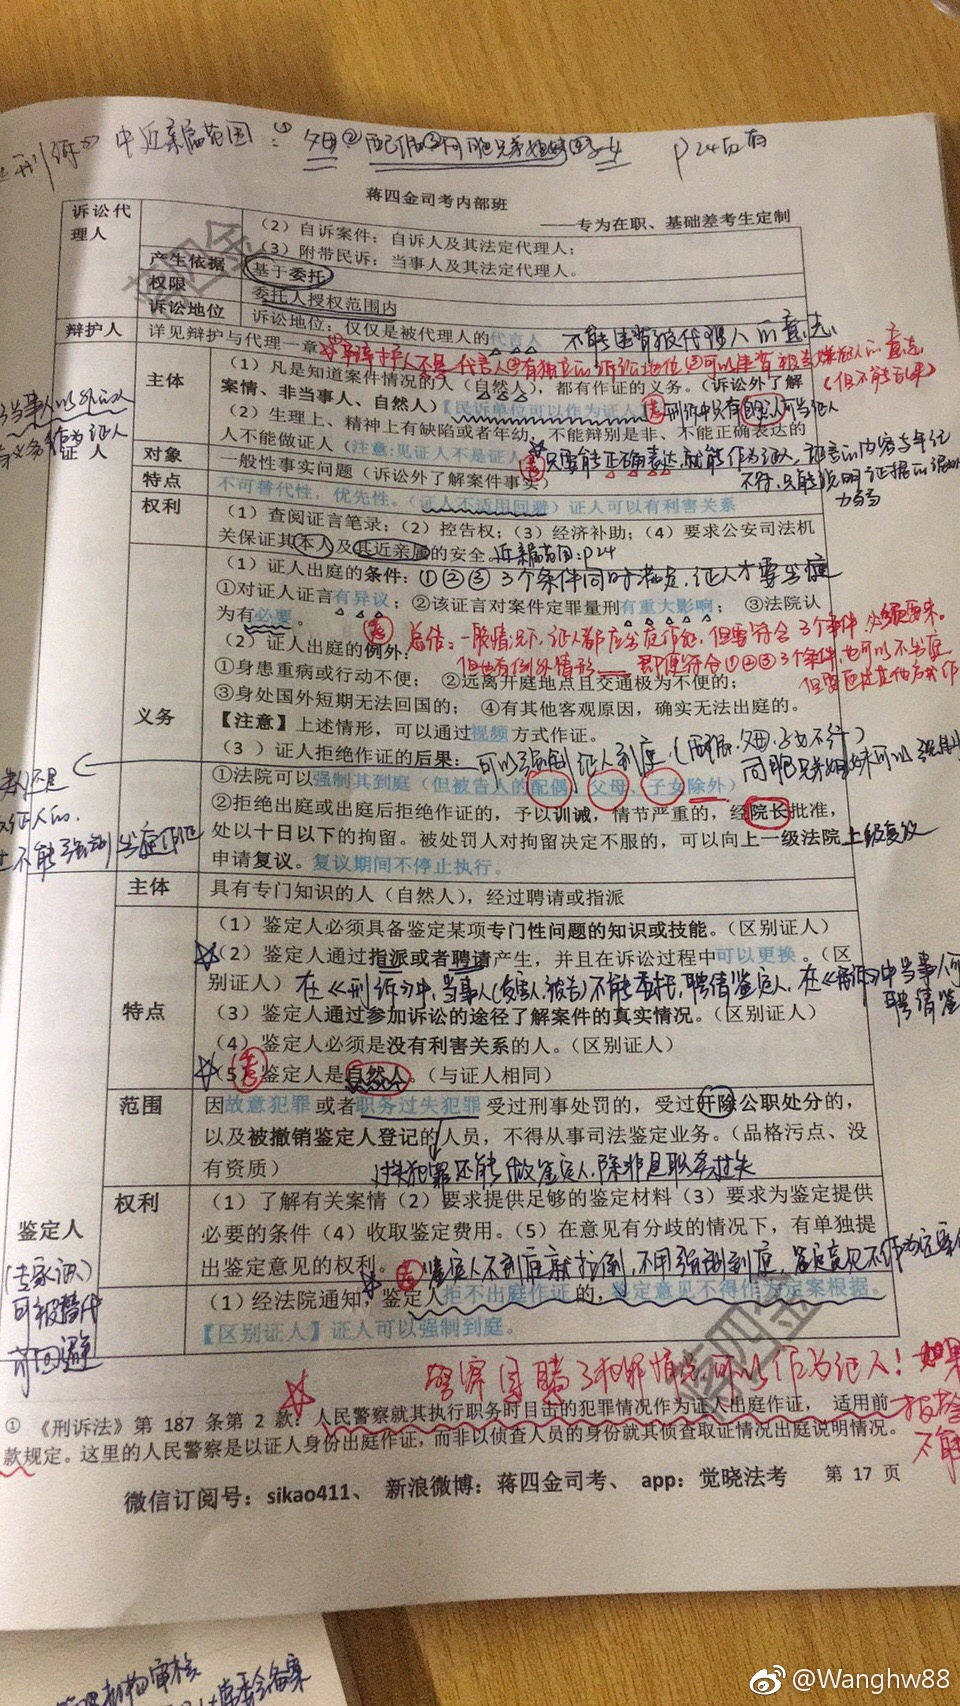 中近亲属范围：①父母②配偶③同胞兄弟姐妹④子女 P24页有
蒋四金司考内部班
——专为在职、基础差考生定制
诉讼代理人
（2）自诉案件：自诉人及其法定代理人；
（3）附带民诉：当事人及其法定代理人。
产生依据 基于委托
权限 委托人授权范围内
诉讼地位 诉讼地位：仅仅是被代理人的代言人 不能违背被代理人的意志
辩护人 详见辩护与代理一章
辩护人不是代言人 有独立的诉讼地位 可以违背被告嫌疑人的意志
证人
主体
（1）凡是知道案件情况的人（自然人），都有作证的义务。（诉讼外了解
案情、非当事人、自然人）【民诉单位可以作为证人】 考 刑诉中只有自然人可当证
（2）生理上、精神上有缺陷或者年幼，不能辩别是非、不能正确表达的
人不能做证人（注意：见证人不是证人） 考 只要能正确表达，就能作为证人，证言的内容与年纪
不符，只能说明证据的证明力弱
对象 一般性事实问题（诉讼外了解案件事实）
特点 不可替代性，优先性。（证人不适用回避）证人可以有利害关系
权利
（1）查阅证言笔录；（2）控告权；（3）经济补助；（4）要求公安司法机
关保证其本人及其近亲属的安全。近亲属范围：P24
义务
（1）证人出庭的条件：①②③3个条件同时满足，证人才要出庭
①对证人证言有异议；②该证言对案件定罪量刑有重大影响；③法院认
为有必要。
考 总结：一般情况下，证人都应出庭作证，但要符合3个条件
（2）证人出庭的例外：
但也有例外情形——即使符合①②③3个条件，也可以不出庭
①身患重病或行动不便；②远离开庭地点且交通极为不便的；
③身处国外短期无法回国的；④有其他客观原因，确实无法出庭的。
【注意】上述情形，可以通过视频方式作证。
（3）证人拒绝作证的后果：可以强制证人到庭（配偶、父母、子女不行）
同胞兄弟姐妹可以强制
①法院可以强制其到庭（但被告人的配偶、父母、子女除外）
②拒绝出庭或出庭后拒绝作证的，予以训诫，情节严重的，经院长批准，
处以十日以下的拘留。被处罚人对拘留决定不服的，可以向上一级法院 上级复议
申请复议。复议期间不停止执行。
不能强制出庭作证
鉴定人
（专家证人）
可被替代
可回避
主体 具有专门知识的人（自然人），经过聘请或指派
特点
（1）鉴定人必须具备鉴定某项专门性问题的知识或技能。（区别证人）
（2）鉴定人通过指派或者聘请产生，并且在诉讼过程中可以更换。（区
别证人）在《刑诉》中，当事人（受害人、被告）不能委托，聘请鉴定人，在《民诉》中当事人可
聘请鉴
（3）鉴定人通过参加诉讼的途径了解案件的真实情况。（区别证人）
（4）鉴定人必须是没有利害关系的人。（区别证人）
（5）考 鉴定人是自然人。（与证人相同）
范围
因故意犯罪或者职务过失犯罪受过刑事处罚的，受过开除公职处分的，
以及被撤销鉴定人登记的人员，不得从事司法鉴定业务。（品格污点、没
有资质） 过失犯罪还能做鉴定人，除非是职务过失
权利
（1）了解有关案情（2）要求提供足够的鉴定材料（3）要求为鉴定提供
必要的条件（4）收取鉴定费用。（5）在意见有分歧的情况下，有单独提
出鉴定意见的权利。
考 鉴定人不到庭就拉倒，不用强制到庭，鉴定意见不作为定案
（1）经法院通知，鉴定人拒不出庭作证的，鉴定意见不得作为定案根据。
【区别证人】证人可以强制到庭。
警察目睹了犯罪情况可以作为证人！如果
① 《刑诉法》第 187 条第 2 款：人民警察就其执行职务时目击的犯罪情况作为证人出庭作证， 适用前
款规定。这里的人民警察是以证人身份出庭作证，而非以侦查人员的身份就其侦查取证情况出庭说明情况。
微信订阅号：sikao411、 新浪微博：蒋四金司考、 app：觉晓法考 第 17 页
蒋四金
蒋四金
@Wanghw88